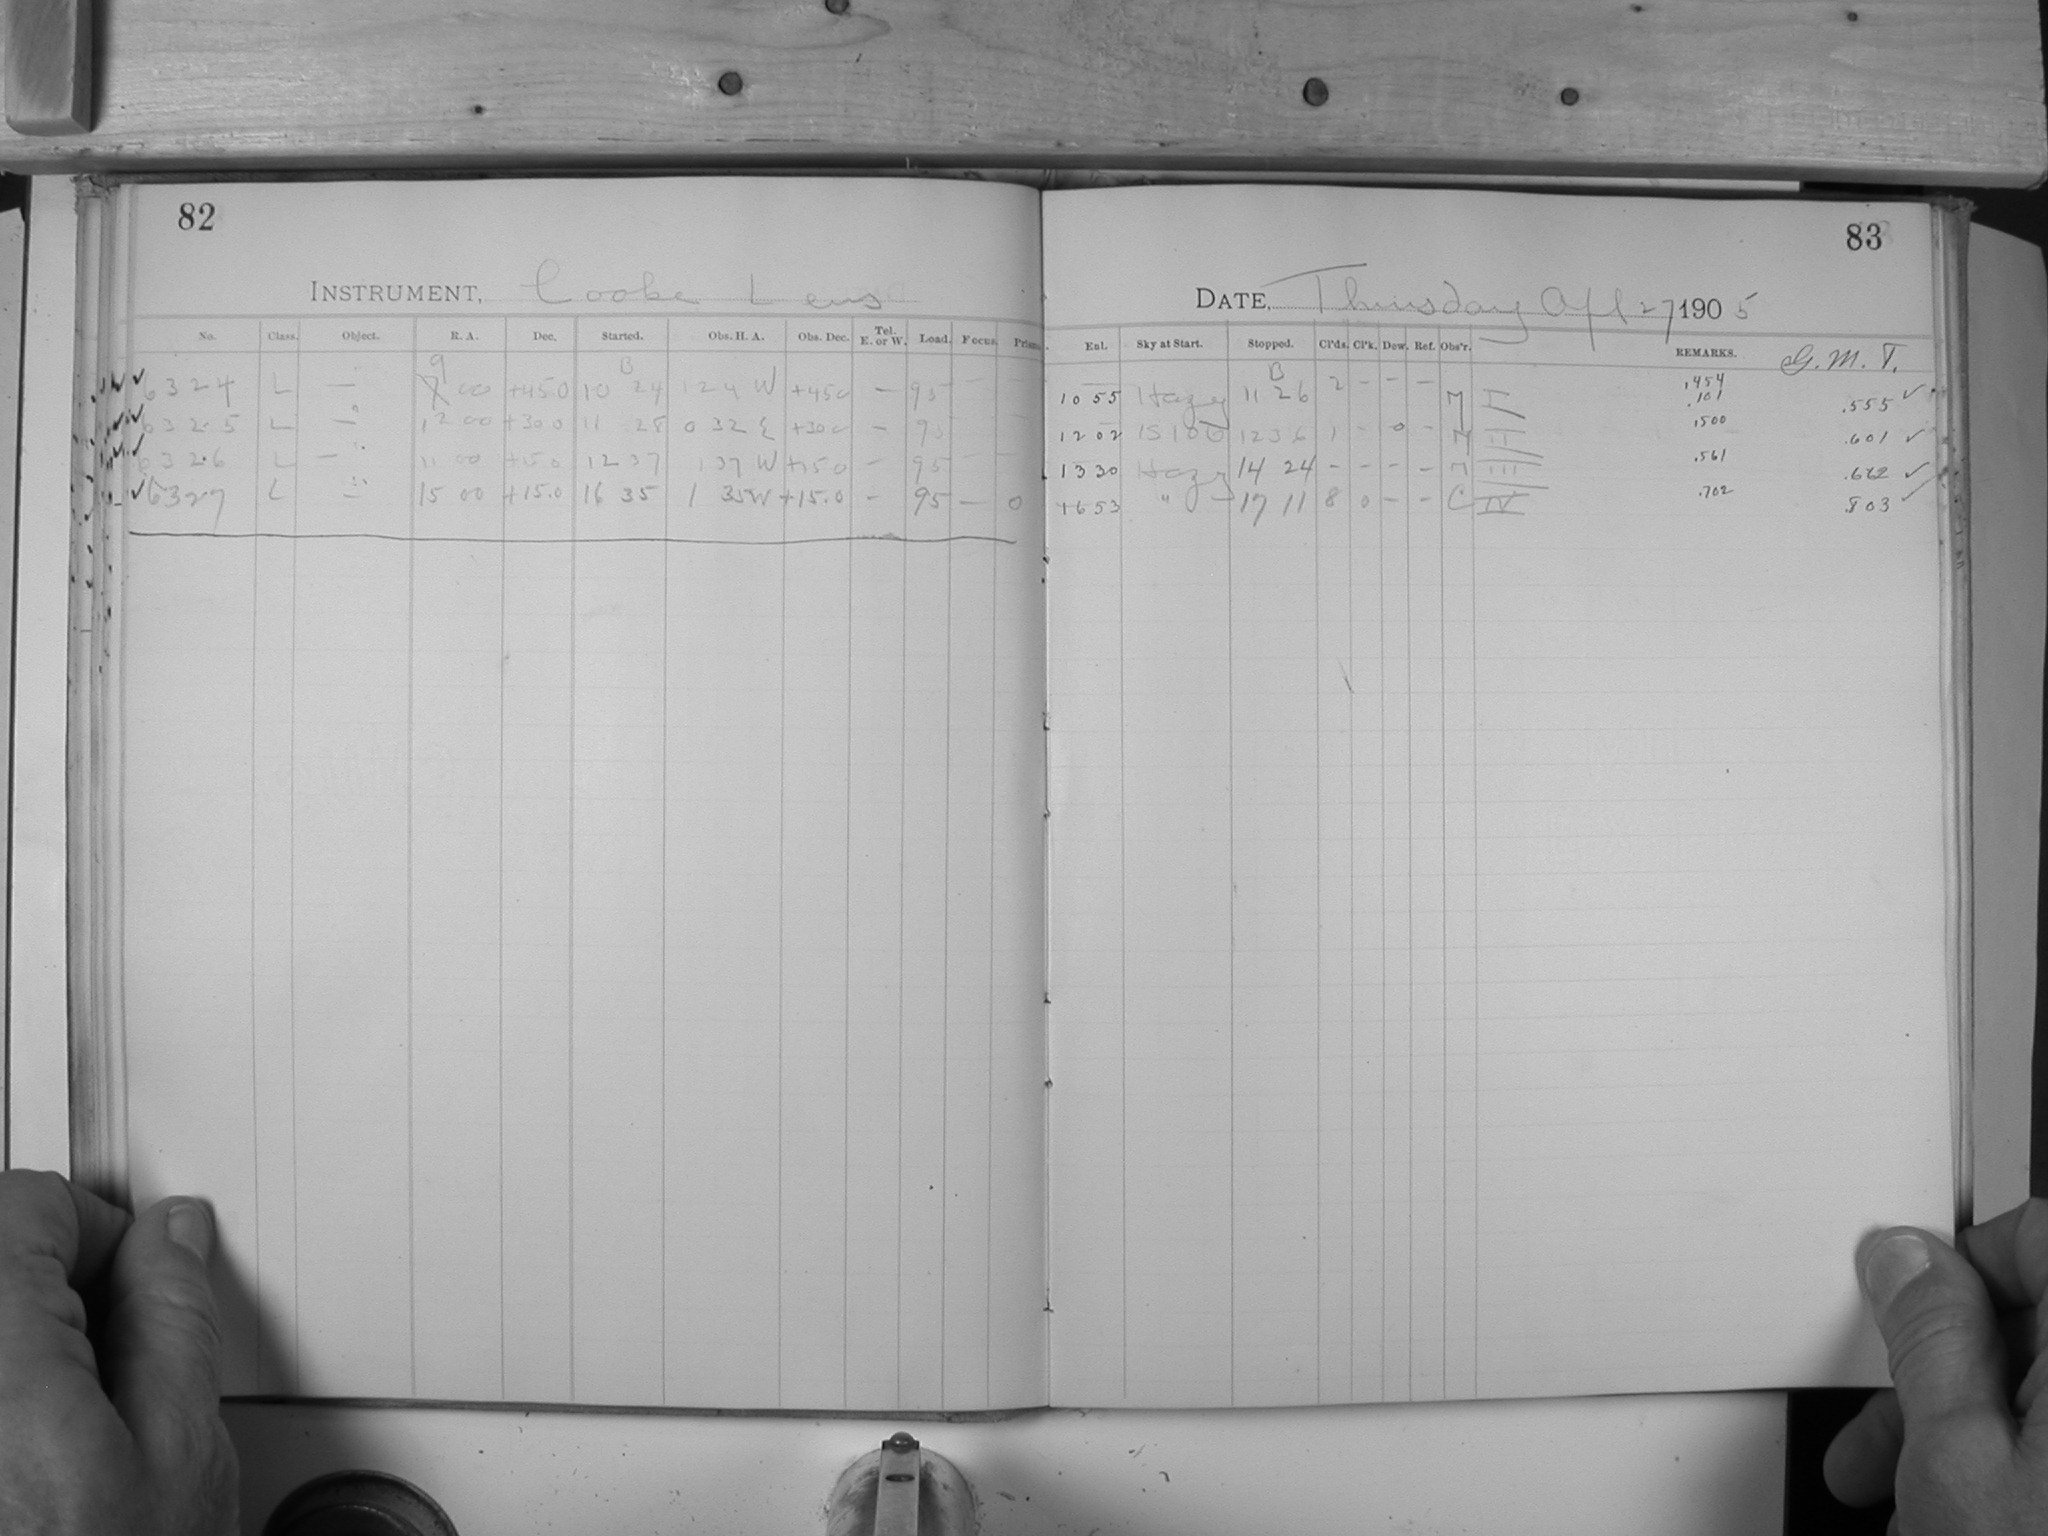 82
INSTRUMENT, Cooke Lens
No. Class. Object. R. A. Dec. Started. Obs. H. A. Obs. Dec. Tel. E. or W. Load. Focus. Prism.
9 B
6324 L — 00 +45.0 10 24 1 24 W +450 — 95 — —
6325 L — 12 00 +300 11 28 0 32 E +300 — 95 — —
6326 L — 11 00 +15.0 12 37 1 37 W +15.0 — 95 — —
6327 L — 15 00 +15.0 16 35 1 35W +15.0 — 95 — 0
83
DATE, Thursday Apl 27 1905
Ent. Sky at Start. Stopped. Cl'ds. Cl'k. Dew. Ref. Obs'r. REMARKS. G. M. T.
B .454
1055 Hazy 11 26 2 — — — M I .101 .555 ✓
1202 1236 1 - 0 - M II .500 .601 ✓
1330 Hazy 14 24 - - - - M III .561 .662 ✓
1653 " 17 11 8 0 - - C IV .702 .803 ✓